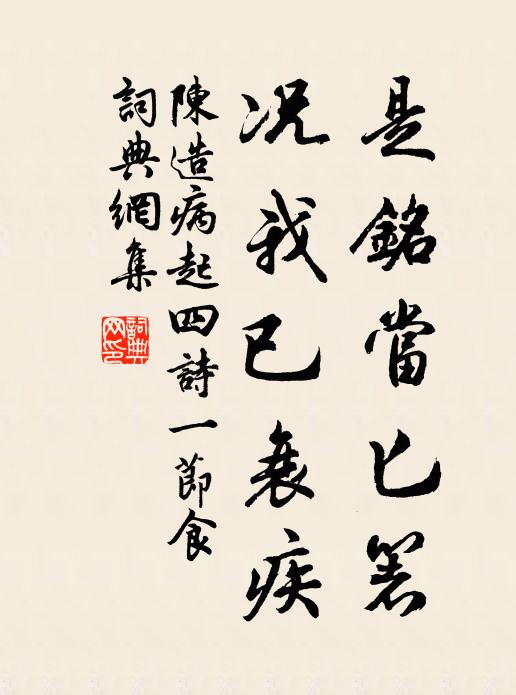 是銘當匕箸
况我已衰疾
陳造病起四詩一節食
詞典網集
詞典网印